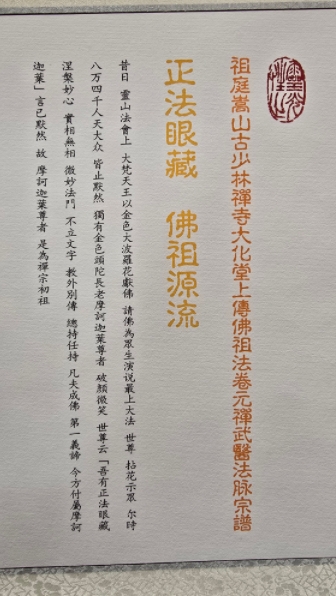 祖庭嵩山古少林禪寺大化堂上傳佛祖法卷元禪武醫法脈宗譜
正法眼藏 佛祖源流
昔日 靈山法會上 大梵天王以金色大波羅花獻佛 請佛為眾生演說最上大法 世尊 拈花示眾 尔時
八万四千人天大众 皆止默然 獨有金色頭陀長老摩訶迦葉尊者 破顏微笑 世尊云「吾有正法眼藏
涅槃妙心 實相無相 微妙法門 不立文字 教外別傳 總持任持 凡夫成佛 第一義諦 今方付屬摩訶
迦葉」言已默然 故 摩訶迦葉尊者 是為禪宗初祖